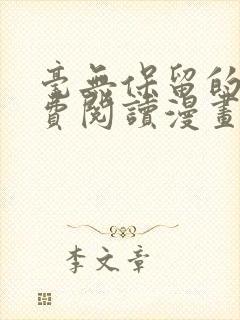 毫無保留的
費閱讀漫畫
李文章